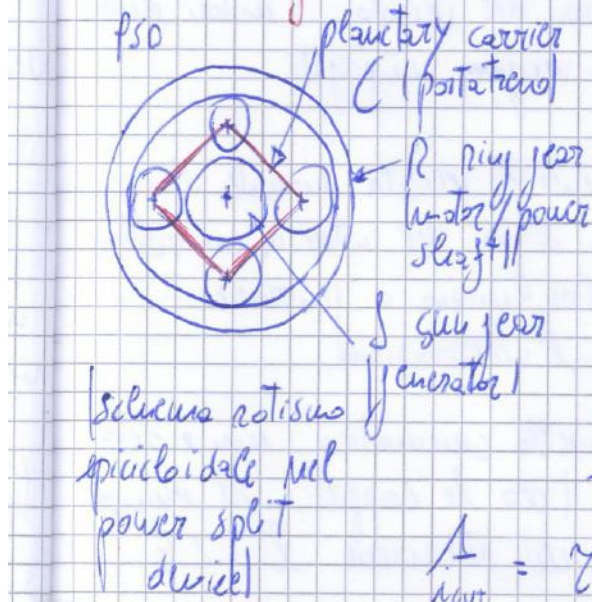 PSD
planetary carrier
C (portatreno)
R ring gear
(motor/power
shaft)
S sun gear
(generator)
(schema rotismo
epicicloidale nel
power split
device)